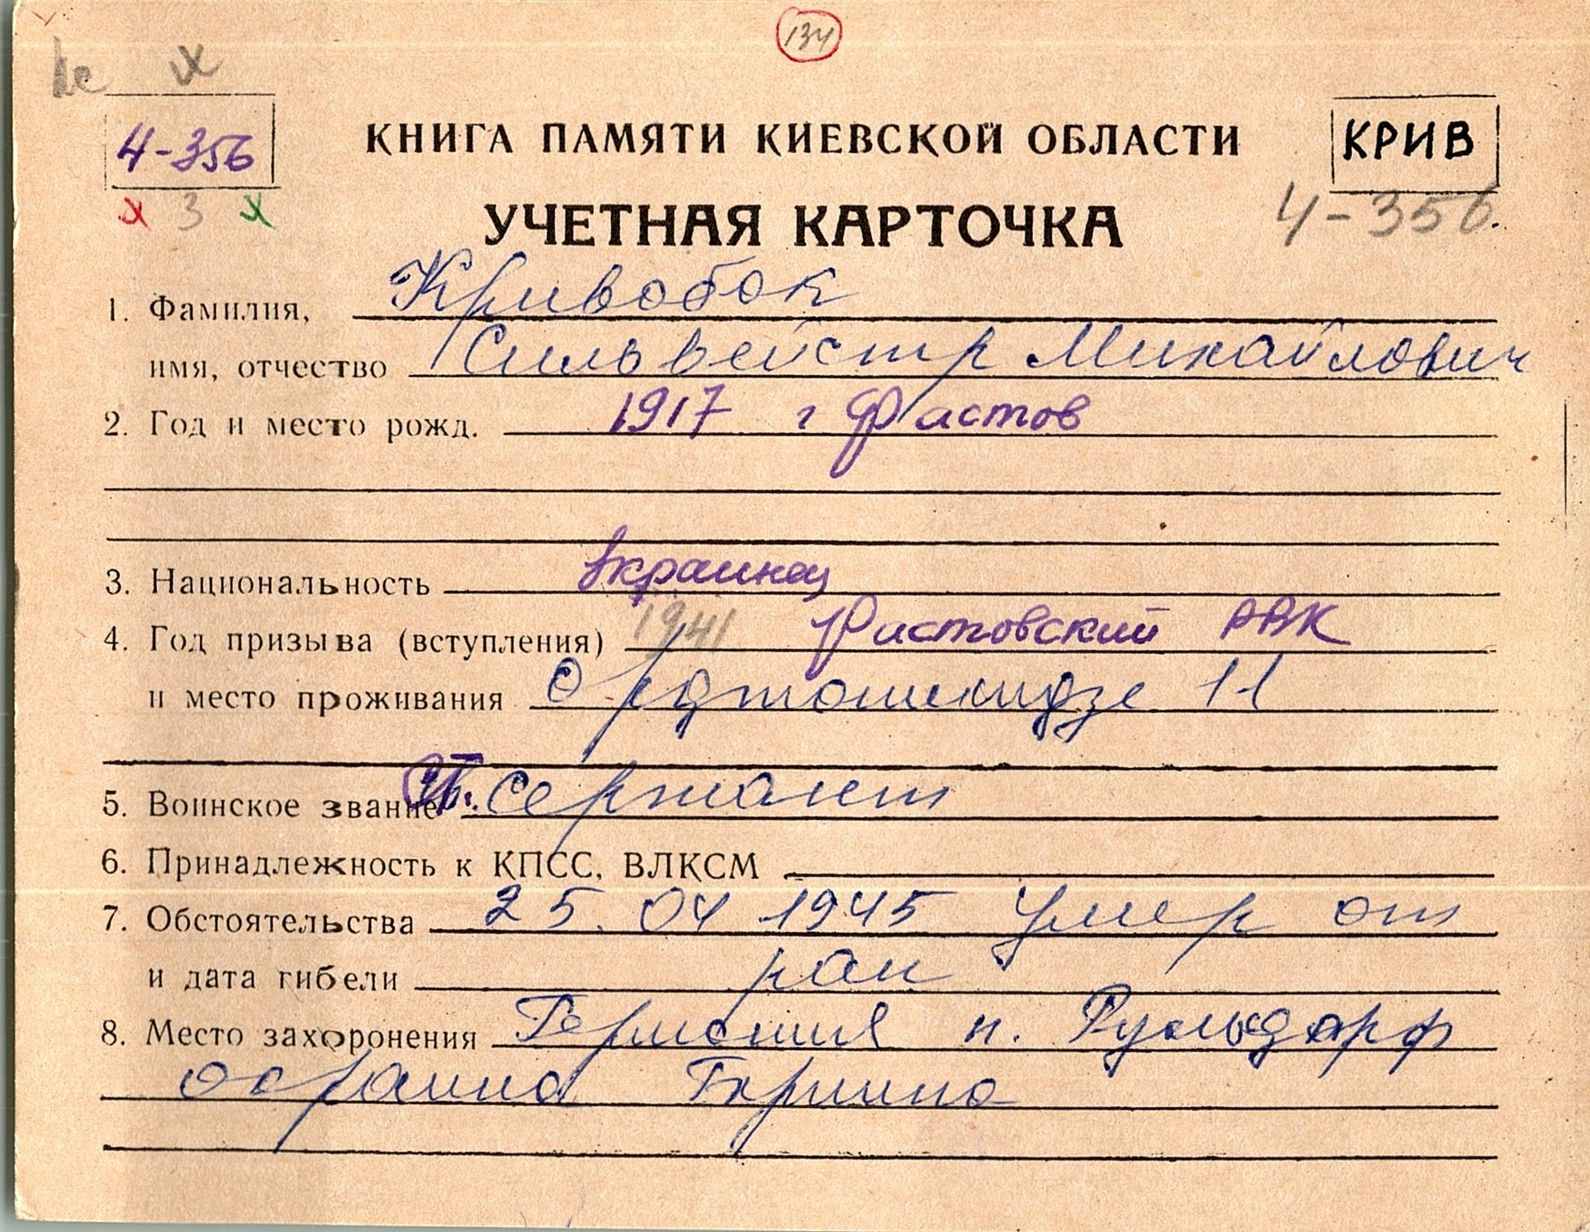 134
4-356
КНИГА ПАМЯТИ КИЕВСКОЙ ОБЛАСТИ
КРИВ
х 3 х
УЧЕТНАЯ КАРТОЧКА
4-356.
1. Фамилия, Кривобок
имя, отчество Сильвейстр Михайлович
2. Год и место рожд. 1917 г Фастов
3. Национальность украинец
4. Год призыва (вступления) 1941 Фастовский РВК
и место проживания Орджоникидзе 11
5. Воинское звание ст. сержант
6. Принадлежность к КПСС, ВЛКСМ
7. Обстоятельства 25.04 1945 умер от
и дата гибели ран
8. Место захоронения Германия н. Рульсдорф
окраина Берлина